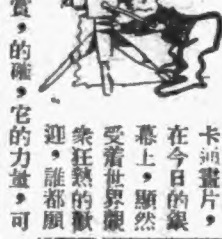 卡通畫片，
在今日的銀
幕上，顯然
受着世界觀
衆狂熱的歡
迎，誰都願
賞，的確，它的力量，可